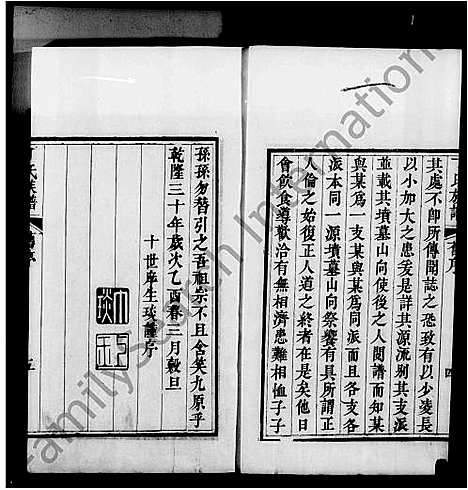 其處不卽所傳聞誌之恐致有以少凌長
以小加大之患爰是詳其源流別其支派
並載其墳墓山向使後之人閱譜而知某
與某爲一支某與某爲同派而且各支各
派本同一源墳墓山向祭饗有具所謂正
人倫之始復正人道之終者在是矣他日
會飲食尊歡洽有無相濟患難相恤子子
四
孫孫勿替引之吾祖宗不且含笑九原乎
乾隆三十年歲次乙酉春三月穀旦
十世庠生琰謹序
氏族譜
五
FamilySearch International